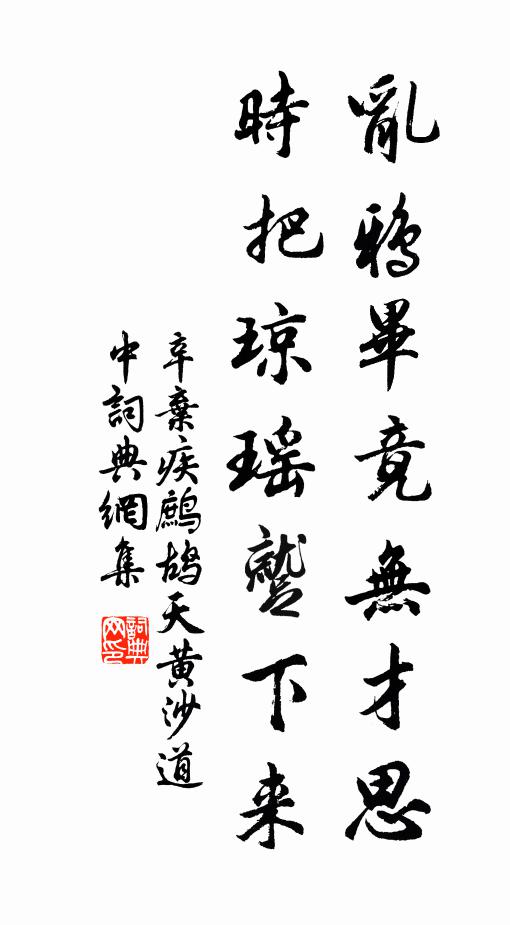 亂鴉畢竟無才思
時把琼瑶蹵下来
辛棄疾鷓鴣天黄沙道
中詞典網集
詞典
网印